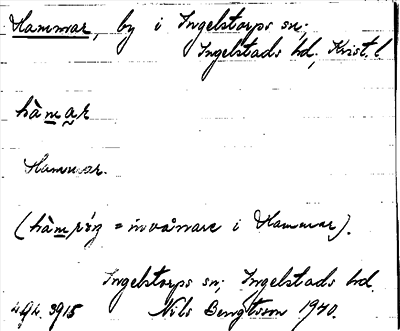 Hammar, by i Ingelstorps sn;
Ingelstads hd, Krist. l
hàmar
Hammar.
( = invånare i Hammar).
Ingelstorps sn; Ingelstads hd.
494. 3915 Nils Bengtsson 1970.